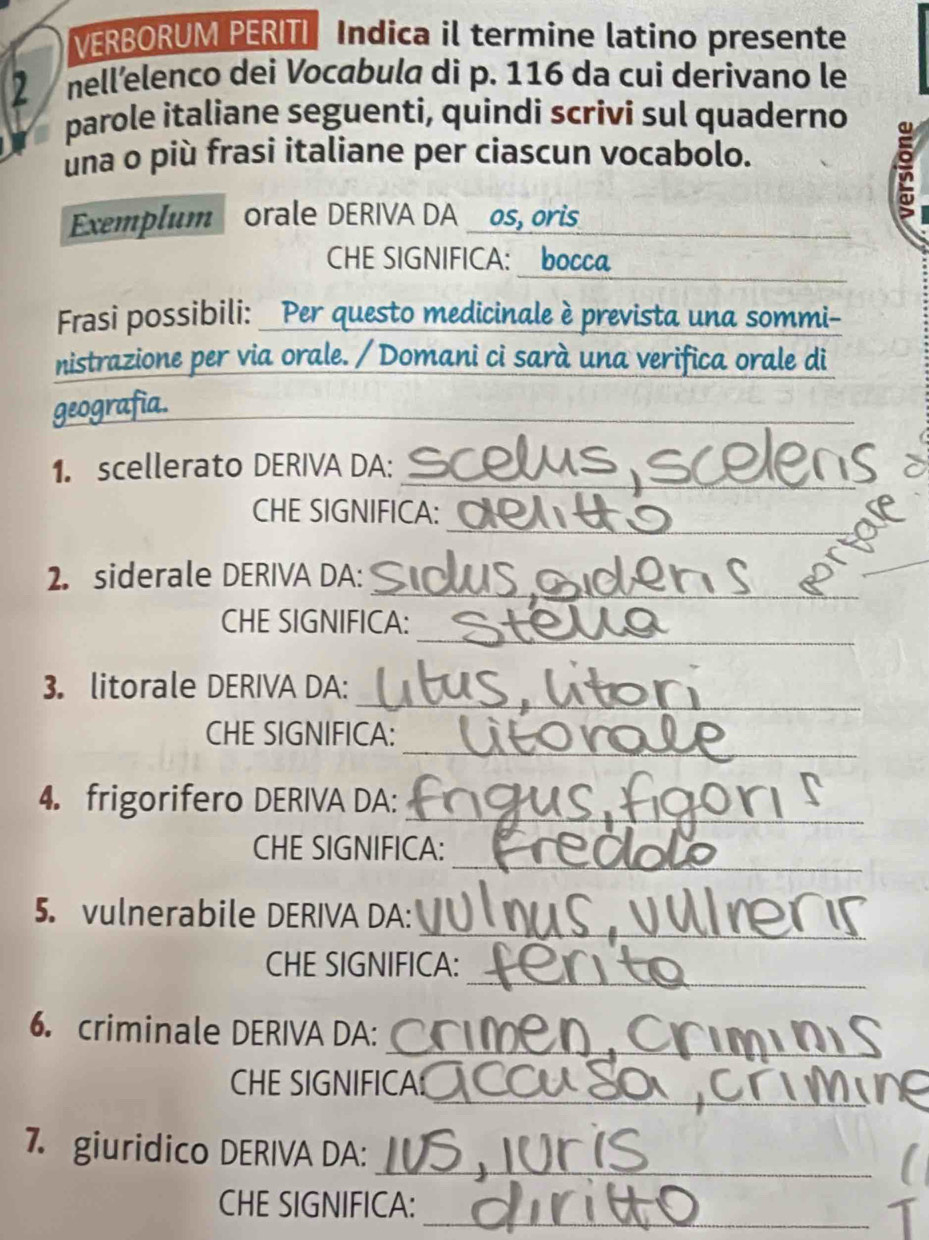 VERBORUM PERITI Indica il termine latino presente
2 nell'elenco dei Vocabula di p. 116 da cui derivano le
parole italiane seguenti, quindi scrivi sul quaderno
una o più frasi italiane per ciascun vocabolo.
versione
Exemplum orale DERIVA DA os, oris
CHE SIGNIFICA: bocca
Frasi possibili: Per questo medicinale è prevista una sommi-
nistrazione per via orale. / Domani ci sarà una verifica orale di
geografia.
1. scellerato DERIVA DA: scelus, sceleris
CHE SIGNIFICA: delitto
portare
2. siderale DERIVA DA: sidus, sideris
CHE SIGNIFICA: stella
3. litorale DERIVA DA: litus, litori
CHE SIGNIFICA: litorale
4. frigorifero DERIVA DA: frigus, figoris
CHE SIGNIFICA: freddo
5. vulnerabile DERIVA DA: vulnus, vulneris
CHE SIGNIFICA: ferita
6. criminale DERIVA DA: crimen, criminis
CHE SIGNIFICA: accusa, crimine
7. giuridico DERIVA DA: ius, iuris
CHE SIGNIFICA: diritto